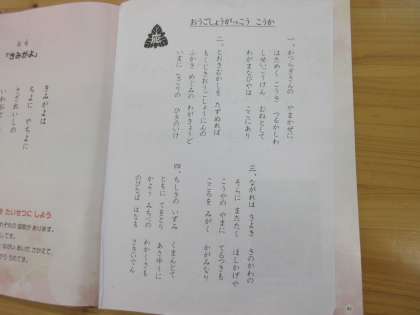 おうごしょうがっこう こうか
一、かつらぎさんの やまかぜに
はためく こうき つるかしわ
しせいごうけん むねとして
わがまなびやは ここにあり
二、とおきむかしを たずぬれば
もくじきおうごしょうにんの
ふかき めぐみの わがきょうど
いまに のこりの ひきのいけ
三、ながれは きよき きのかわの
そらに またたく ほしかげや
こうやの やまに てるつきも
こころを みがく かがみなり
四、ちしきの いずみ くまんとて
ともに てをとり あさゆうに
かよう みちべの わかくさも
のびたば はなも さきいでん
国歌
「きみがよ」
きみがよは
ちよに やちよに
さざれいしの
いわおと
たいせつに しよう